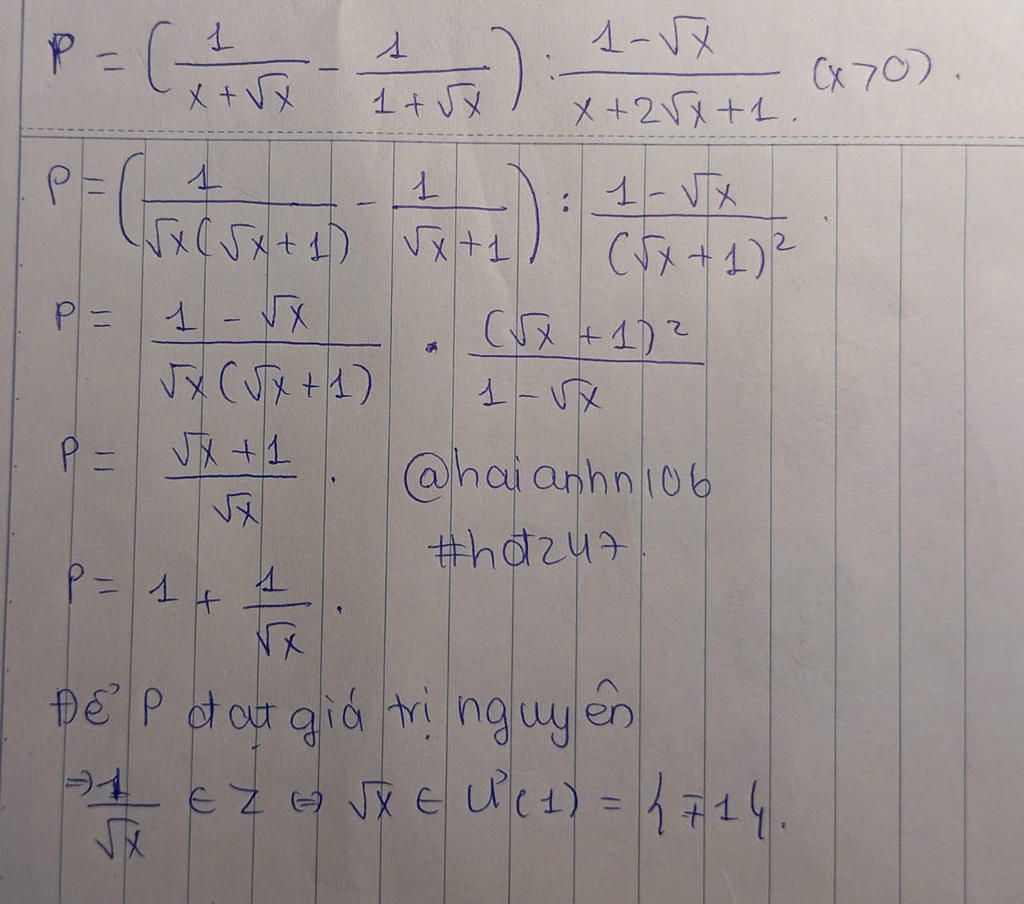 P = (1/(x+√x) - 1/(1+√x)) : (1-√x)/(x+2√x+1). (x>0).
P = (1/(√x(√x+1)) - 1/(√x+1)) : (1-√x)/(√x+1)².
P = (1-√x)/(√x(√x+1)) . (√x+1)²/(1-√x)
P = (√x+1)/√x. @haianhn106
#hdt247.
P = 1 + 1/√x.
Để P đạt giá trị nguyên
⇒ 1/√x ∈ Z ⇔ √x ∈ Ư(1) = {∓1}.